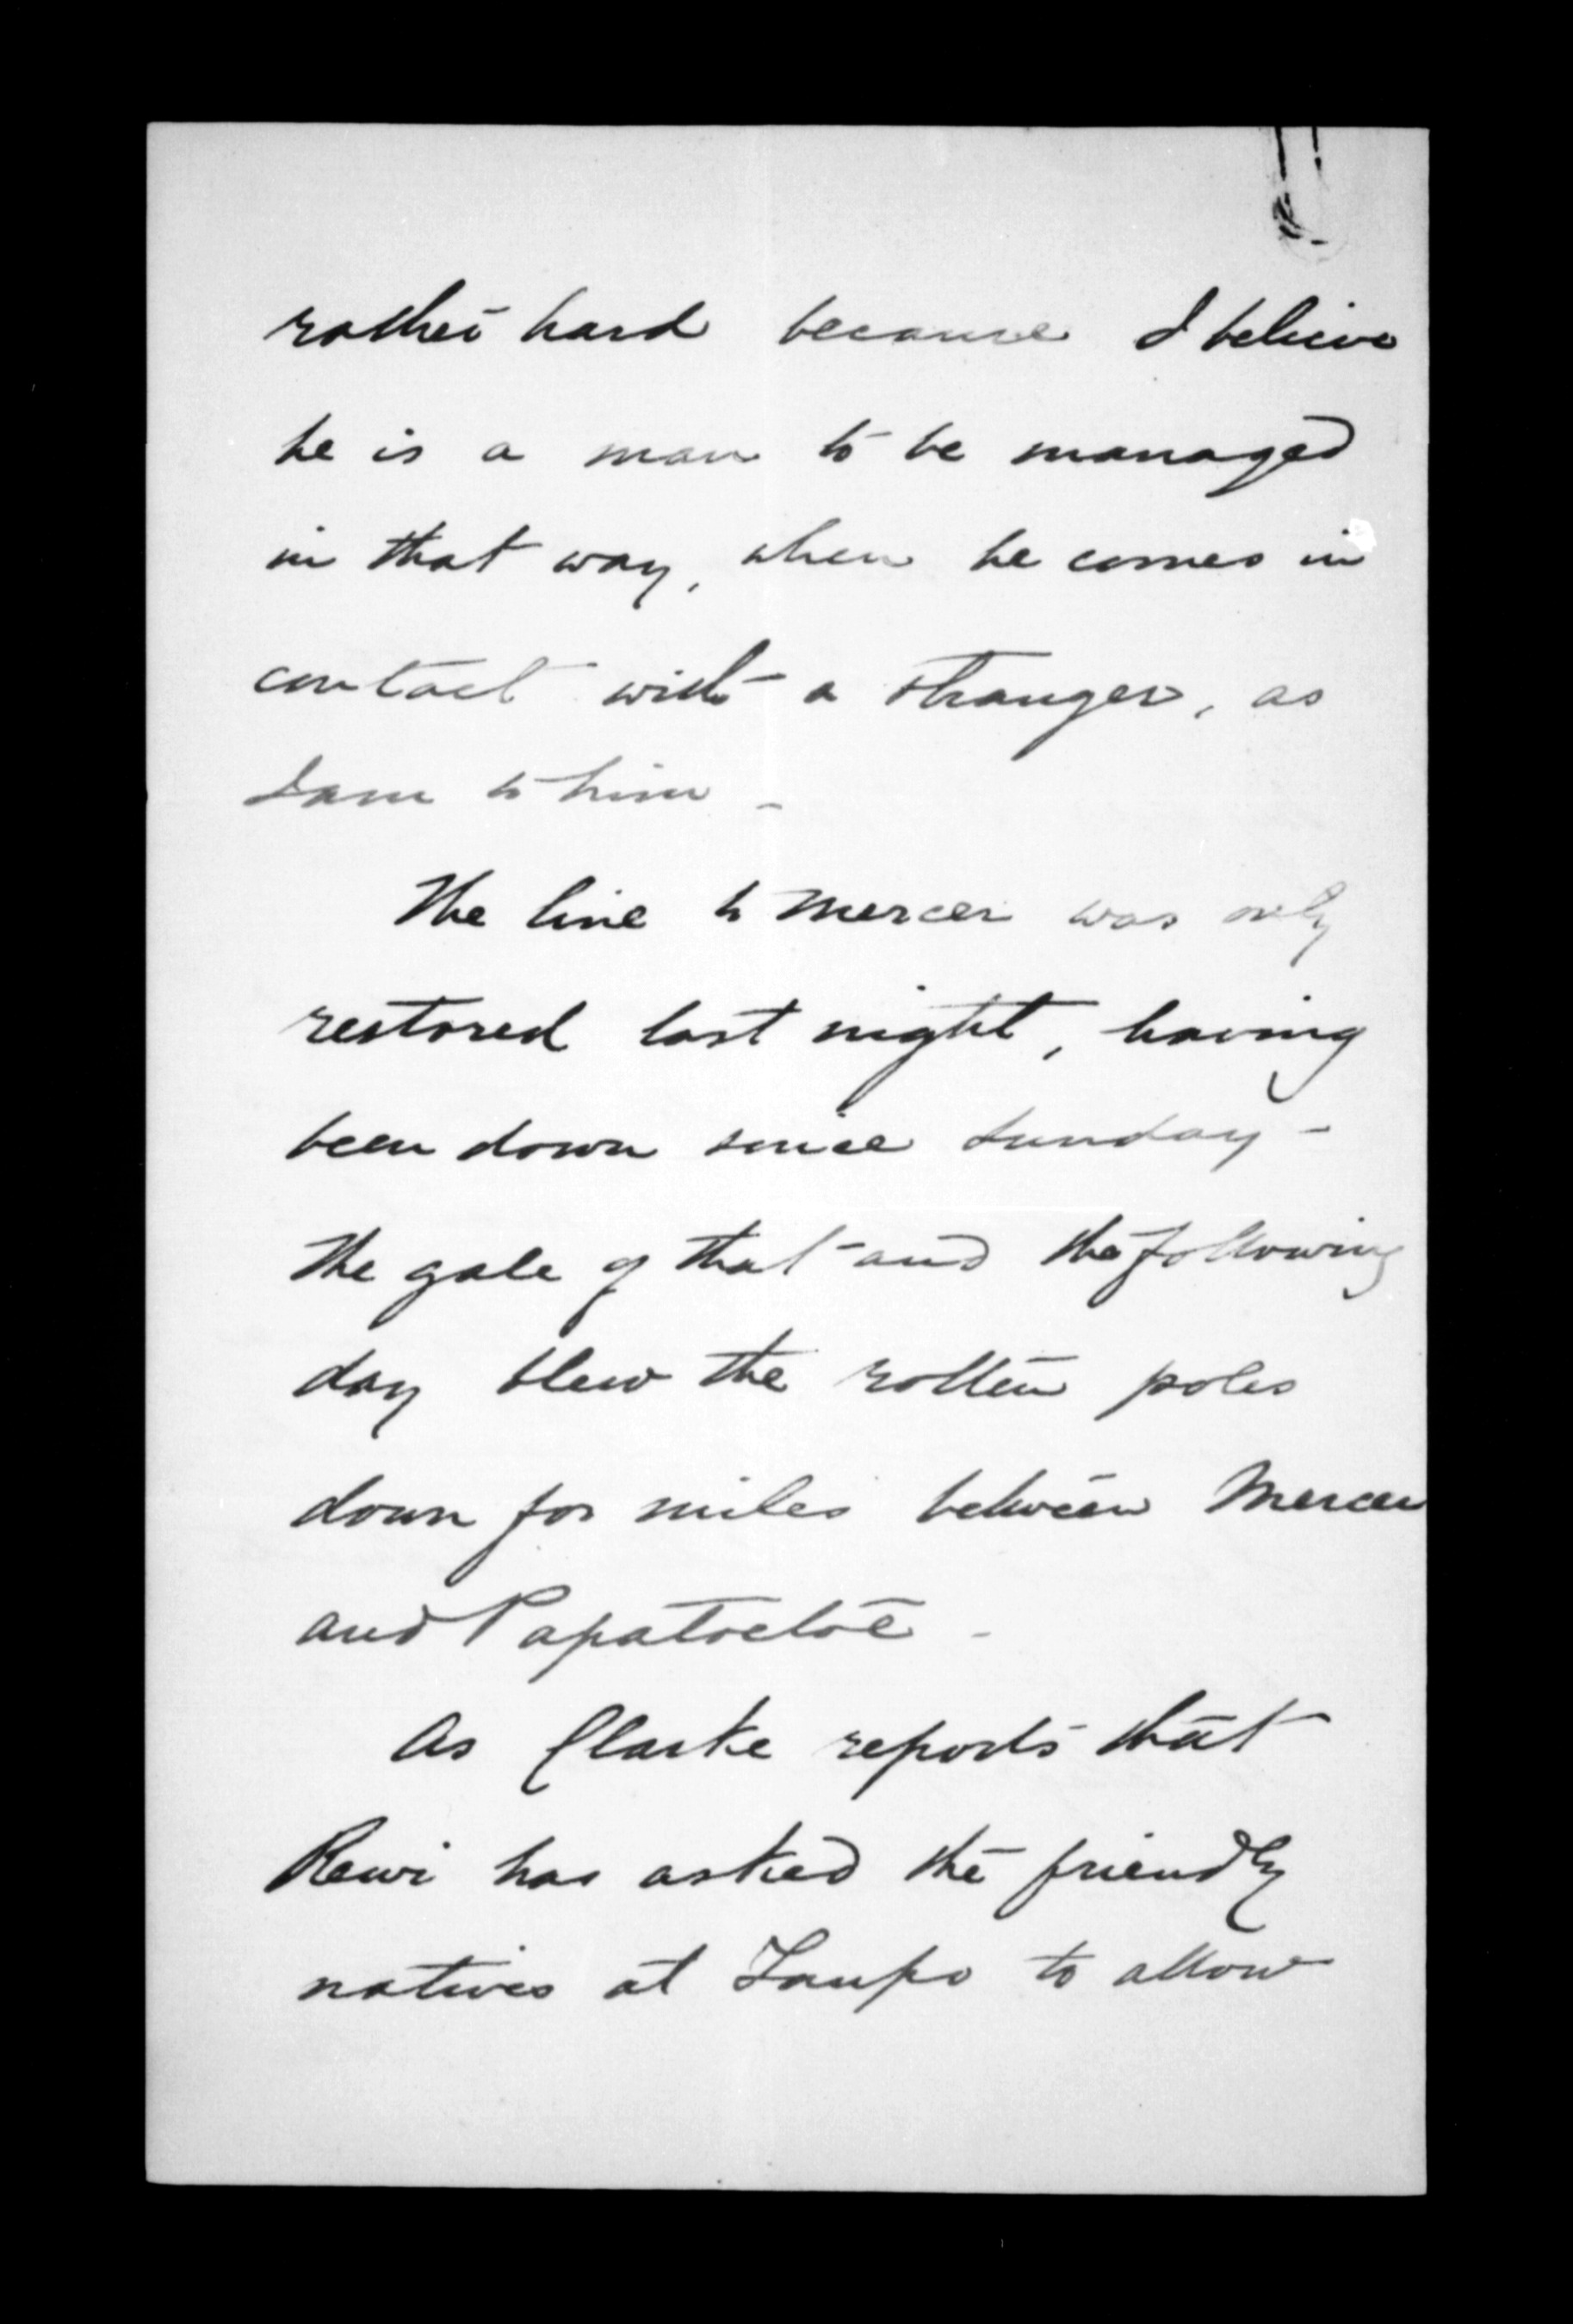 rather hard because I believe
he is a man to be managed
in that way, when he comes in
contact with a stranger, as
I am to him -
The line to Mercer was only
restored last night, having
been down since Sunday -
The gale of that and the following
day blew the rotten poles
down for miles between Mercer
and Papatoetoe -
As Clarke reports that
Rewi has asked the friendly
natives at Taupo to allow